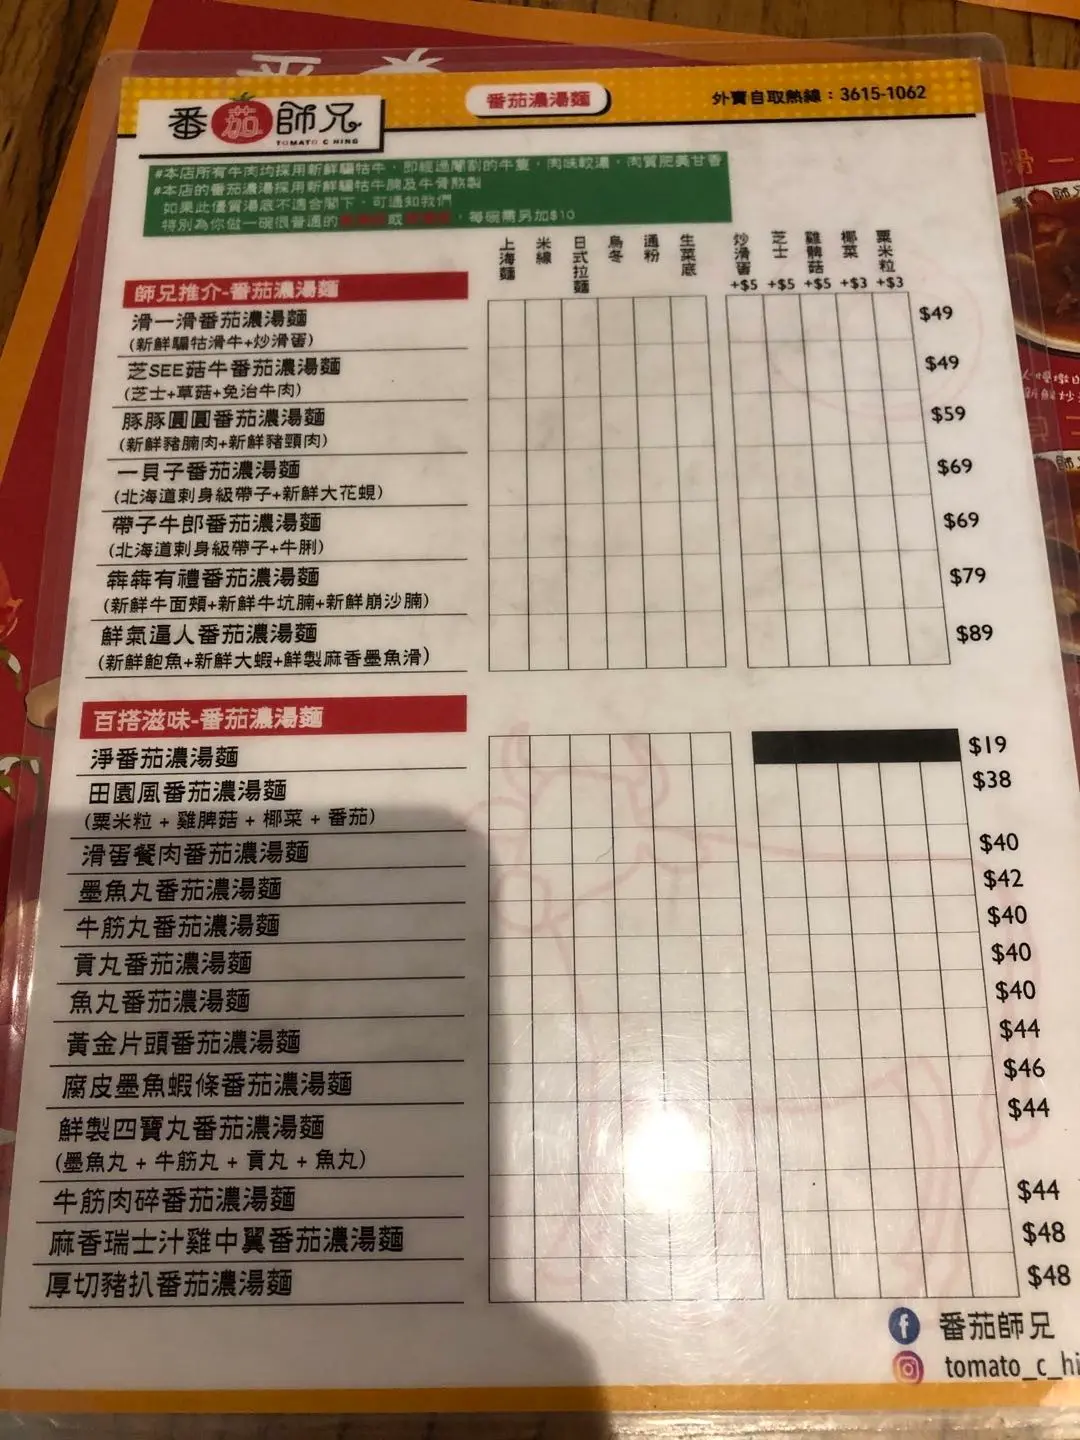 番茄師兄
TOMATO C HING
番茄濃湯麵
外賣自取熱線：3615-1062
#本店所有牛肉均採用新鮮騸牯牛，即經過閹割的牛隻，肉味較濃，肉質肥美甘香
#本店的番茄濃湯採用新鮮騸牯牛腩及牛骨熬製
如果此優質湯底不適合閣下，可通知我們
特別為你做一碗很普通的 或 ，每碗需另加$10
上海麵 米線 日式拉麵 烏冬 通粉 生菜底 炒滑蛋 芝士 雞髀菇 椰菜 粟米粒
+$5 +$5 +$5 +$3 +$3
師兄推介-番茄濃湯麵
滑一滑番茄濃湯麵 $49
(新鮮騸牯滑牛+炒滑蛋)
芝SEE菇牛番茄濃湯麵 $49
(芝士+草菇+免治牛肉)
豚豚圓圓番茄濃湯麵 $59
(新鮮豬腩肉+新鮮豬頸肉)
一貝子番茄濃湯麵 $69
(北海道刺身級帶子+新鮮大花蜆)
帶子牛郎番茄濃湯麵 $69
(北海道刺身級帶子+牛脷)
犇犇有禮番茄濃湯麵 $79
(新鮮牛面頰+新鮮牛坑腩+新鮮崩沙腩)
鮮氣逼人番茄濃湯麵 $89
(新鮮鮑魚+新鮮大蝦+鮮製麻香墨魚滑)
百搭滋味-番茄濃湯麵
淨番茄濃湯麵 $19
田園風番茄濃湯麵 $38
(粟米粒 + 雞髀菇 + 椰菜 + 番茄)
滑蛋餐肉番茄濃湯麵 $40
墨魚丸番茄濃湯麵 $42
牛筋丸番茄濃湯麵 $40
貢丸番茄濃湯麵 $40
魚丸番茄濃湯麵 $40
黃金片頭番茄濃湯麵 $44
腐皮墨魚蝦條番茄濃湯麵 $46
鮮製四寶丸番茄濃湯麵 $44
(墨魚丸 + 牛筋丸 + 貢丸 + 魚丸)
牛筋肉碎番茄濃湯麵 $44
麻香瑞士汁雞中翼番茄濃湯麵 $48
厚切豬扒番茄濃湯麵 $48
番茄師兄
tomato_c_hi